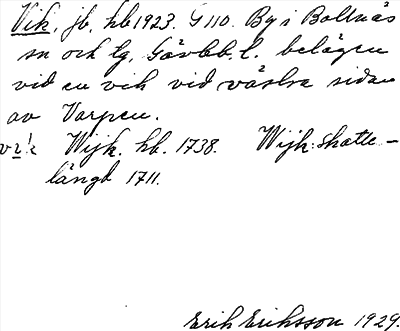 Vik, jb, hb 1923. G 110. By i Bollnäs
sn och tg, Gävleb. l. belägen
vid en vik vid västra sidan
av Varpen.
Wijk. hb. 1738. Wijk: Skatte-
längd 1711.
Erik Eriksson 1929.